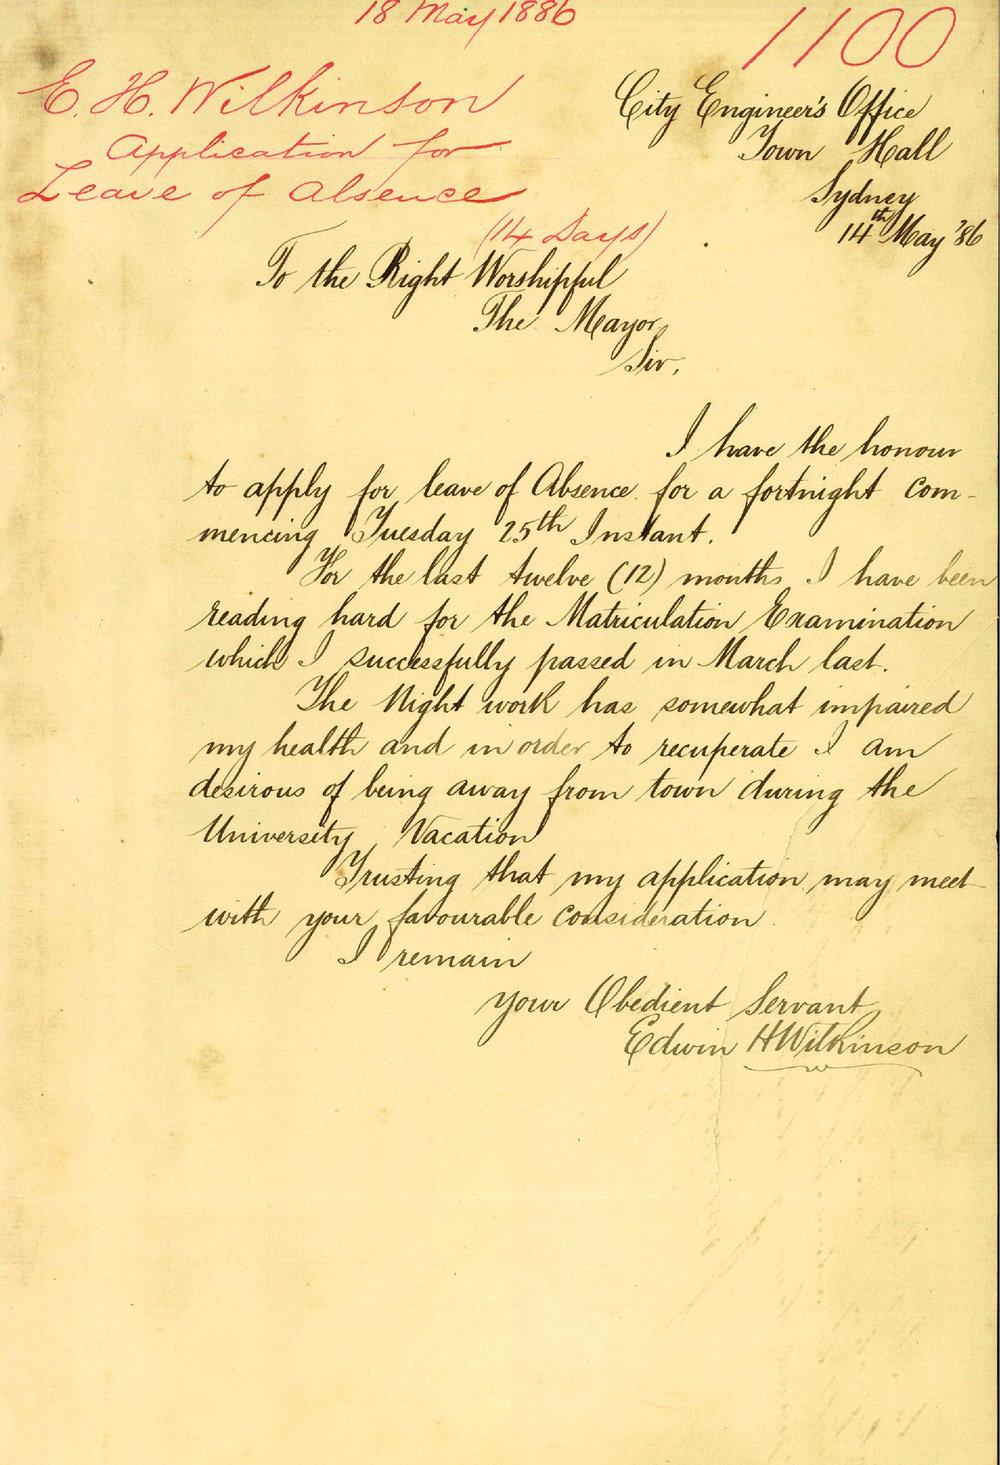 18 May 1886
1100
E. H. Wilkinson
Application for
Leave of Absence
(14 Days)
City Engineer's Office
Town Hall
Sydney
14th May '86
To the Right Worshipful
The Mayor
Sir,
I have the honour
to apply for leave of Absence for a fortnight com-
mencing Tuesday 25th Instant.
For the last twelve (12) months I have been
reading hard for the Matriculation Examination
which I successfully passed in March last.
The Night work has somewhat impaired
my health and in order to recuperate I am
desirous of being away from town during the
University Vacation
Trusting that my application may meet
with your favourable consideration
I remain
your Obedient Servant
Edwin H Wilkinson